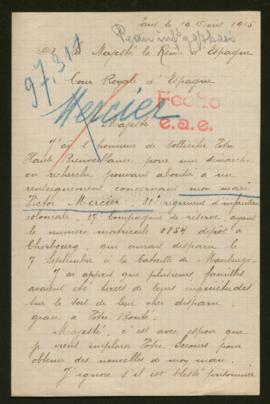 le 19 Août 1915
97.311
A Sa Majesté la Reine d'Espagne
Cour Royale d'Espagne
Mercier
Fecho
e.a.e.
Majesté
J'ai l'honneur de solliciter Votre
Haute Bienveillance, pour une démarche
ou recherche, pouvant aboutir à un
renseignement concernant mon mari
Victor Mercier 31e régiment d'infanterie
coloniale, 17 Compagnie de réserve, ayant
le numéro matricule 0854 dépôt à
Cherbourg, qui aurait disparu le
7 Septembre à la Bataille de Maubeuge.
J'ai appris que plusieurs familles
avaient été tirées de leurs inquiétudes
sur le sort de leur cher disparu,
grâce à Votre Bonté.
Majesté, c'est avec espoir que
je viens implorer Votre Secours pour
obtenir des nouvelles de mon mari.
J'ignore s'il est blessé prisonnier